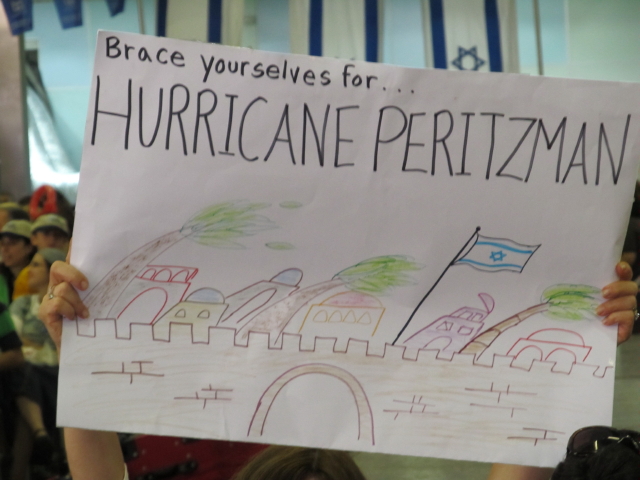 Brace yourselves for...
HURRICANE PERITZMAN